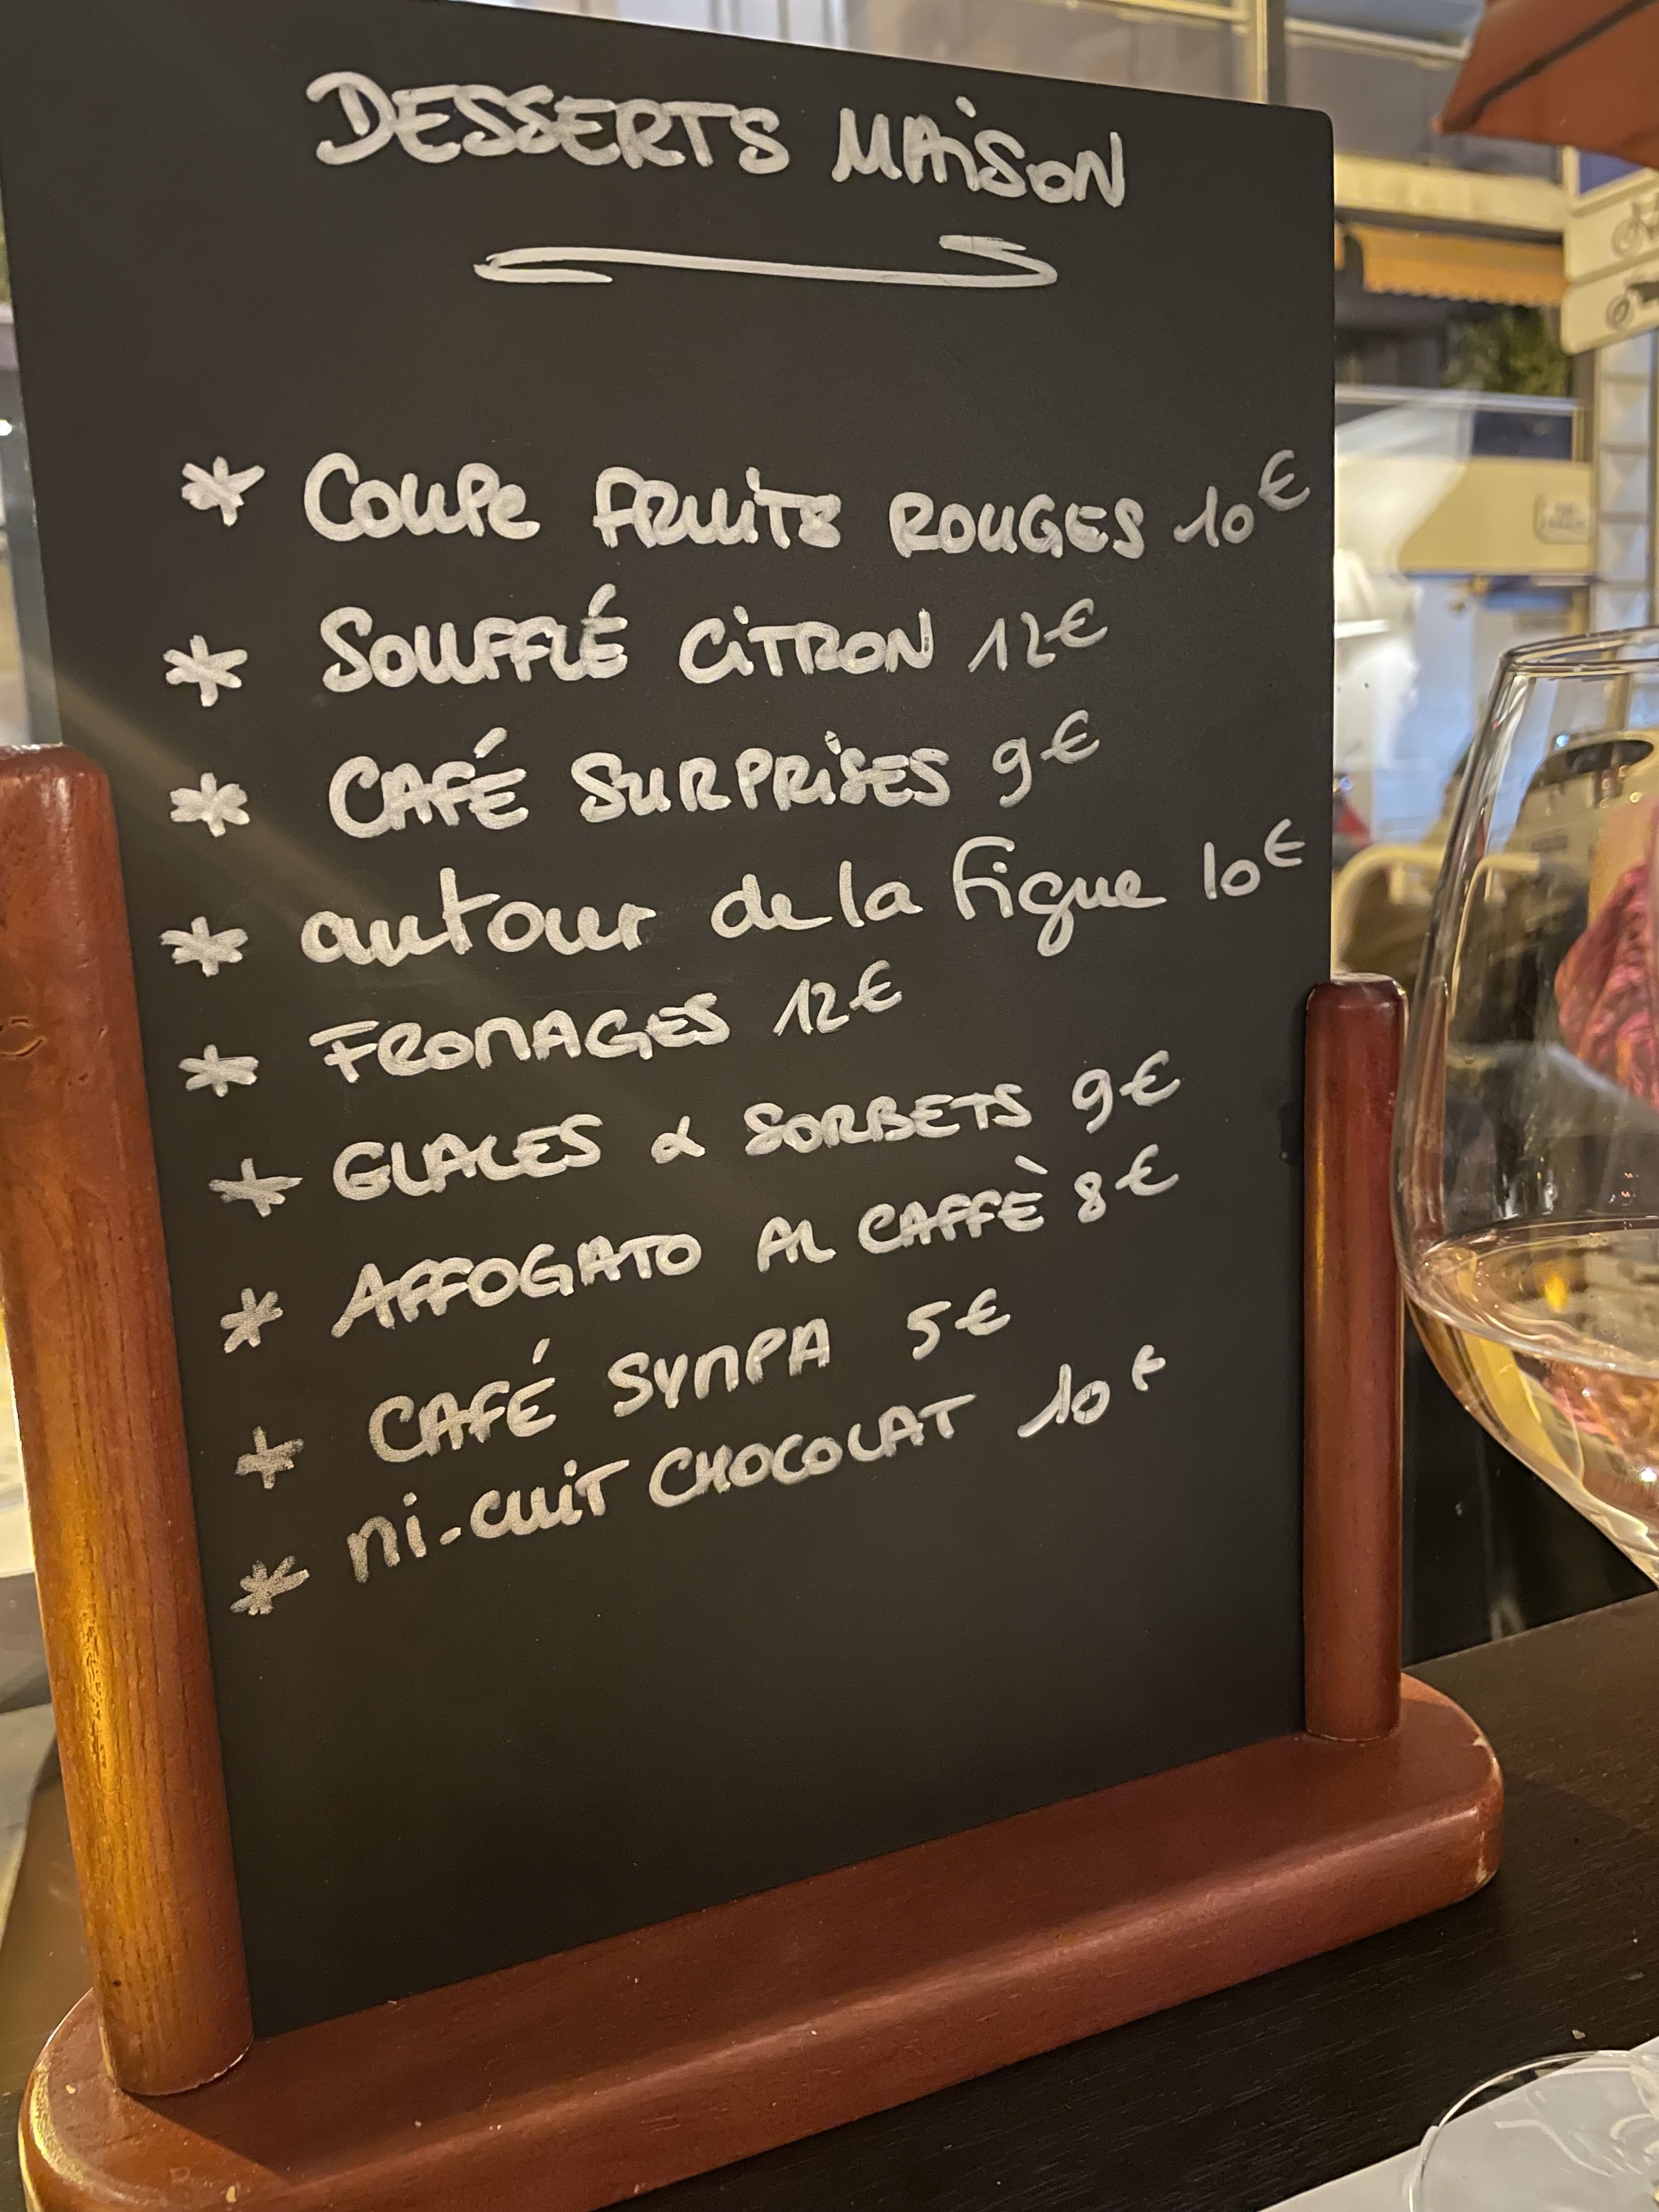 DESSERTS MAiSON
* Coupe FRuiTS ROUGES 10€
* SOUFFLÉ CiTRON 12€
* CAFÉ SURPRiSES 9€
* autour de la figue 10€
* FROMAGES 12€
* GLACES & SORBETS 9€
* AFFOGATO AL CAFFÈ 8€
* CAFÉ SYMPA 5€
* mi-cuiT CHOCOLAT 10€